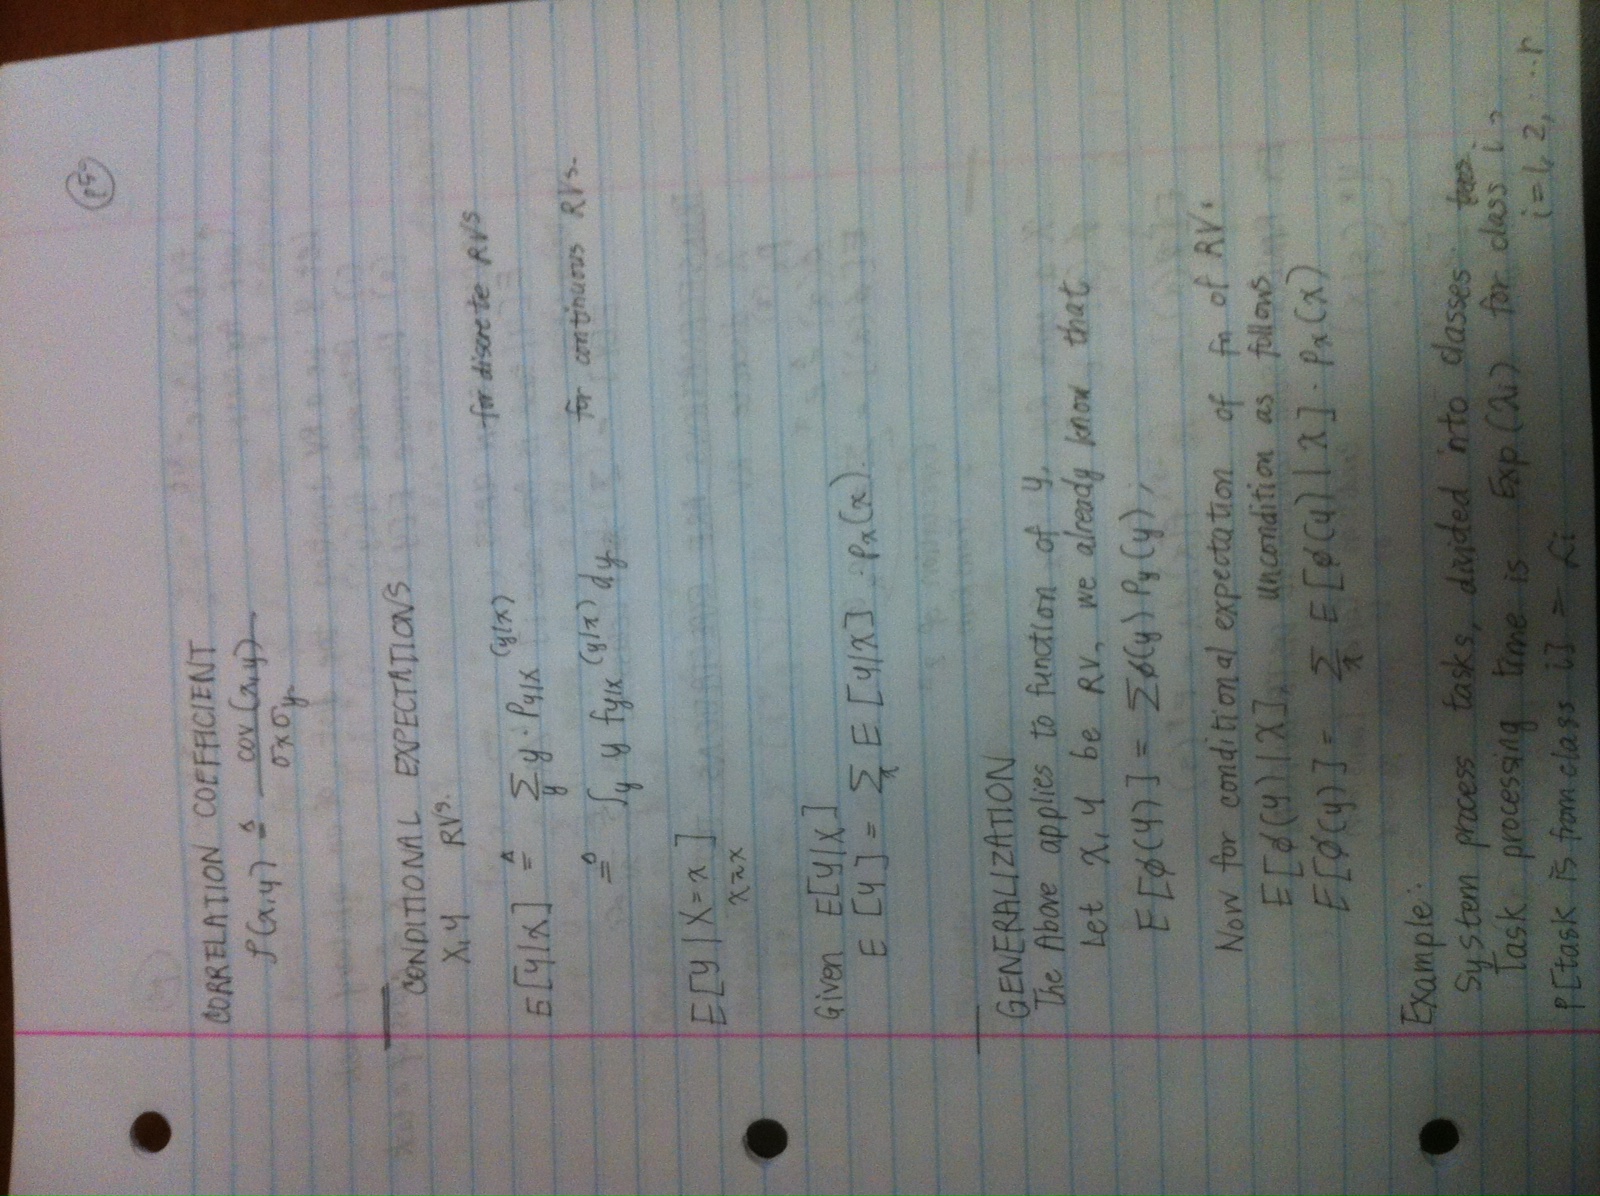 p5
CORRELATION COEFFICIENT
ρ(x,y) ≜ cov(x,y) / σx σy
CONDITIONAL EXPECTATIONS
X, Y RVs.
E[Y|X] ≜ Σ_y y · P_{Y|X}(y|x) for discrete RVs
≜ ∫_y y f_{Y|X}(y|x) dy for continuous RVs.
E[Y | X=x]
x=x
Given E[Y|X]
E[Y] = Σ_x E[Y|X] · P_x(x).
GENERALIZATION
The Above applies to function of Y.
Let X, Y be RV, we already know that
E[ϕ(Y)] = Σϕ(y) P_y(y),
Now for conditional expectation of fn of RV.
E[ϕ(y)|X], uncondition as follows
E[ϕ(y)] = Σ_x E[ϕ(y)|X] · P_x(x)
Example:
System process tasks, divided into classes
Task processing time is Exp(λi) for class i,
i=1, 2, ...r
P[task is from class i] = αi